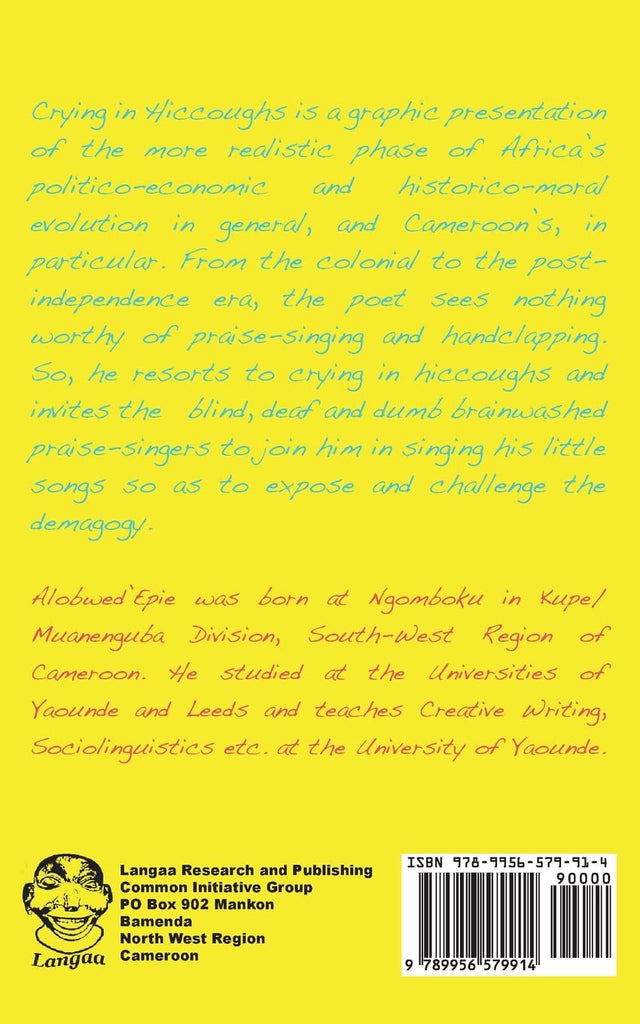 Crying in Hiccoughs is a graphic presentation
of the more realistic phase of Africa's
politico-economic and historico-moral
evolution in general, and Cameroon's, in
particular. From the colonial to the post-
independence era, the poet sees nothing
worthy of praise-singing and handclapping.
So, he resorts to crying in hiccoughs and
invites the blind, deaf and dumb brainwashed
praise-singers to join him in singing his little
songs so as to expose and challenge the
demagogy.
Alobwed'Epie was born at Ngomboku in Kupe/
Muanenguba Division, South-West Region of
Cameroon. He studied at the Universities of
Yaounde and Leeds and teaches Creative Writing,
Sociolinguistics etc. at the University of Yaounde.
Langaa
Langaa Research and Publishing
Common Initiative Group
PO Box 902 Mankon
Bamenda
North West Region
Cameroon
ISBN 978-9956-579-91-4
90000
9 789956 579914